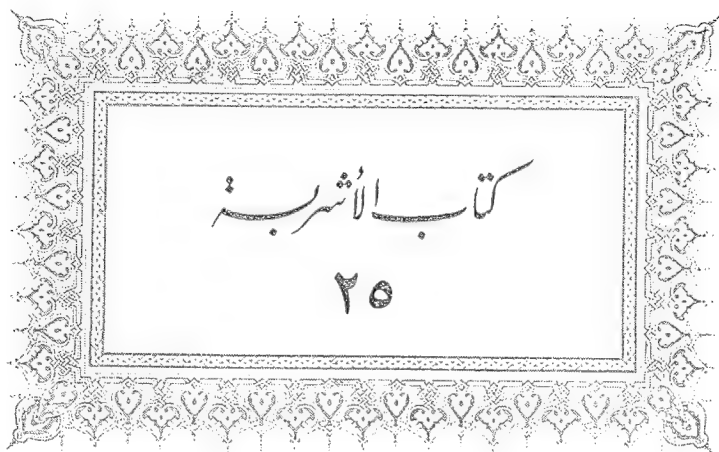 كتاب الأشربة
٢٥